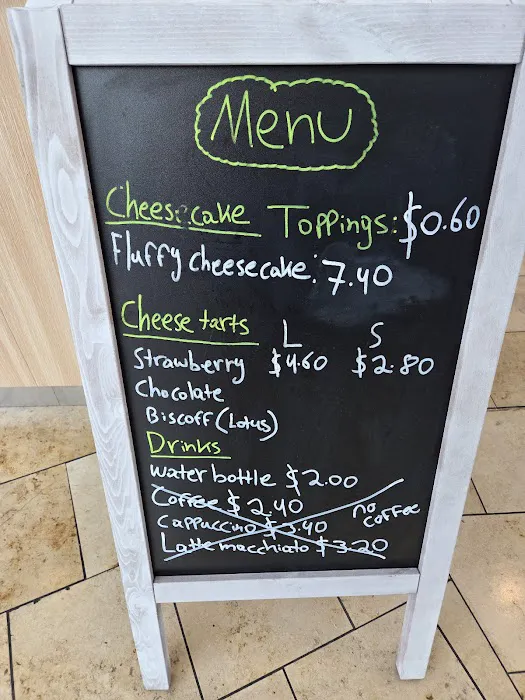 Menu
Cheesecake Toppings: $0.60
Fluffy cheesecake: 7.40
Cheese tarts L S
Strawberry $4.60 $2.80
Chocolate
Biscoff (Lotus)
Drinks
water bottle $2.00
Coffee $2.40
no coffee
cappuccino $3.40
Latte macchiato $3.20